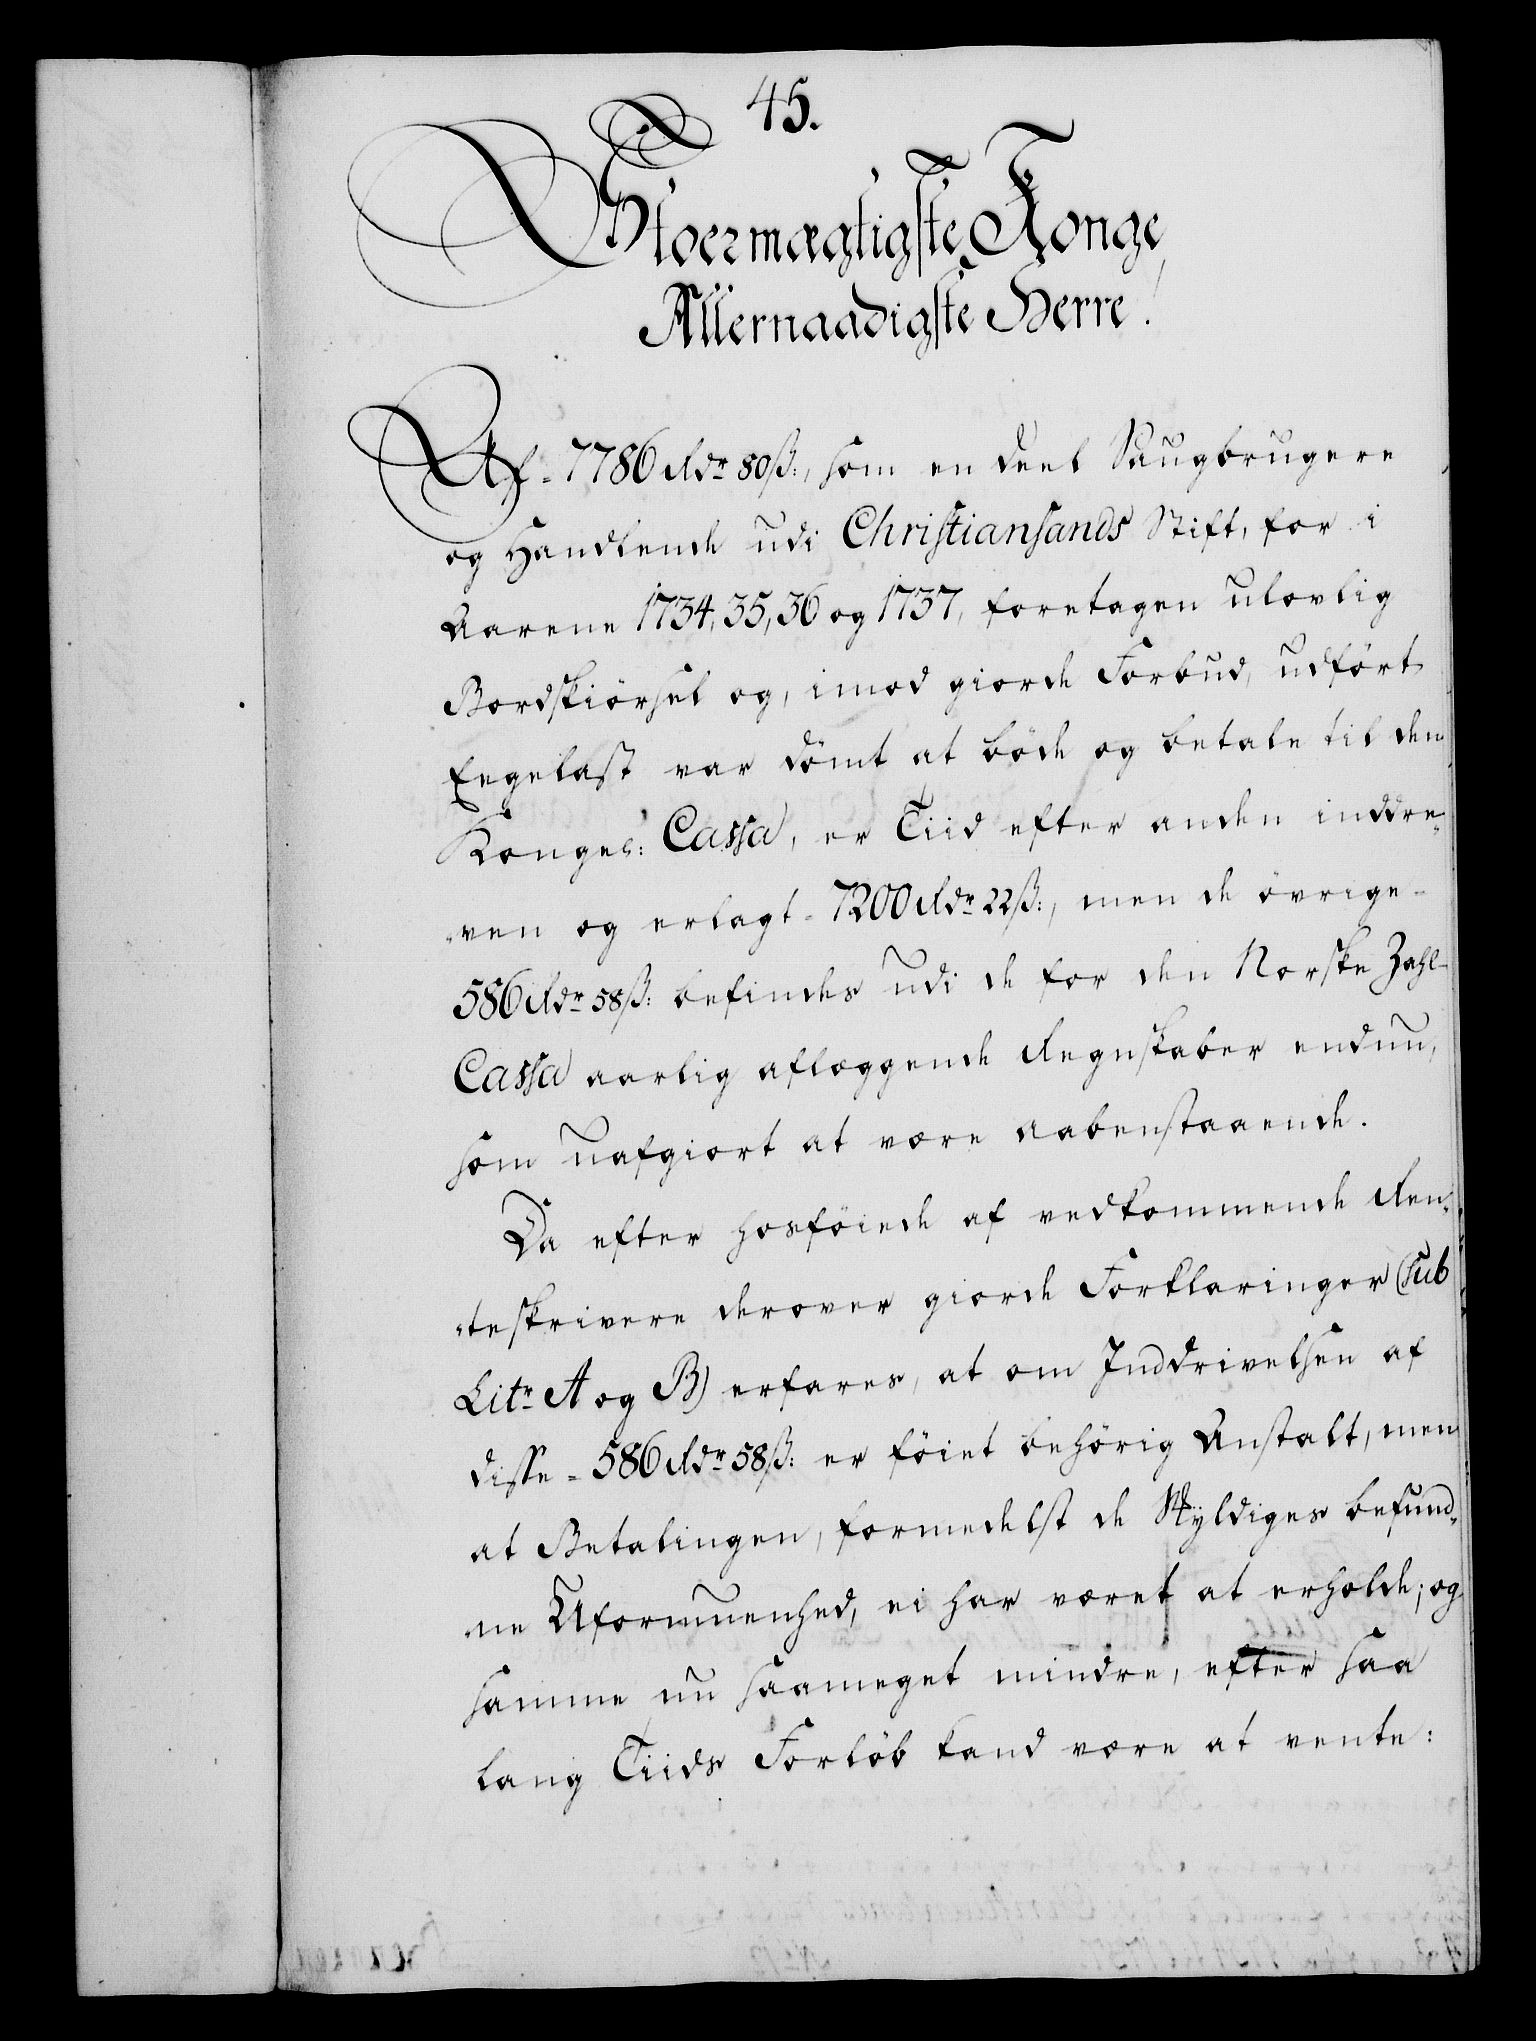 45.
Stoermægtigste Konge,
Allernaadigste Herre!
Af - 7786 Rdr 80ß:, som en deel Saugbrugere
og Handlende udi Christiansands Stift, for i
Aarene 1734, 35, 36 og 1737, foretagen ulovlig
Bordskiörsel og, imod giorde Forbud, udført
Eegelast var dömt at böde og betale til den
Kongel: Cassa, er Tiid efter anden inddre„
„ven og erlagt - 7200 Rdr 22ß:, men de övrige -
586 Rdr 58ß: befindes udi de for den Norske Zahl-
Cassa aarlig aflæggende Regnskaber endnu,
som uafgiort at være aabenstaaende.
Da efter hosföiede af vedkommende Ren„
„teskrivere derover giorde Forklaringer (sub
Litr A og B) erfares, at om Inddrivelsen af
disse - 586 Rdr 58ß: er föiet behörig Anstalt, men
at Betalingen, formedelst de Skyldiges befund„
„ne Uformuenhed, ei har været at erholde; og
samme nu saameget mindre, efter saa
lang Tiids Forlöb kand være at vente: